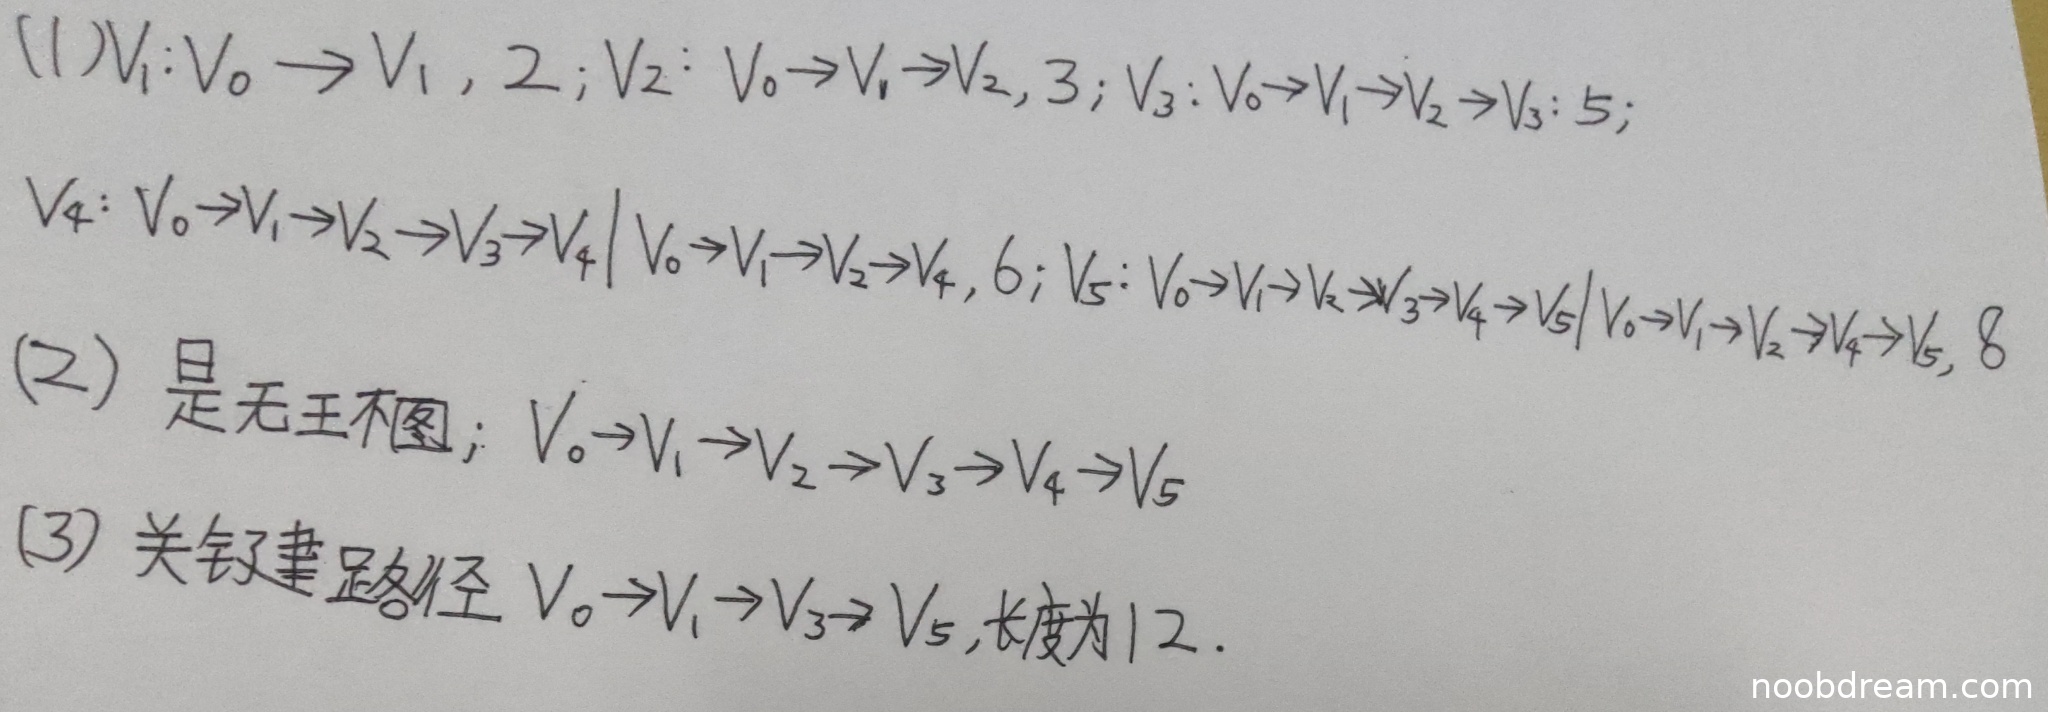 (1) V₁: V₀→V₁, 2; V2: V₀→V₁→V₂, 3; V₃: V₀→V₁→V₂→V₃: 5;
V₄: V₀→V₁→V₂→V₃→V₄ | V₀→V₁→V₂→V₄, 6; V₅: V₀→V₁→V₂→V₃→V₄→V₅ | V₀→V₁→V₂→V₄→V₅, 8
(2) 是无王不图; V₀→V₁→V₂→V₃→V₄→V₅
(3) 关键路径 V₀→V₁→V₃→V₅, 长度为12.
noobdream.com